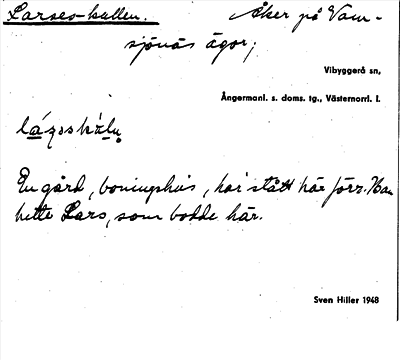 Larses-kullen. Åker på Vam-
sjönäs ägor;
Vibyggerå sn,
Ångermanl. s. doms. tg., Västernorrl. l.
En gård, boningshus, har stått här förr. Han
hette Lars, som bodde här.
Sven Hiller 1948